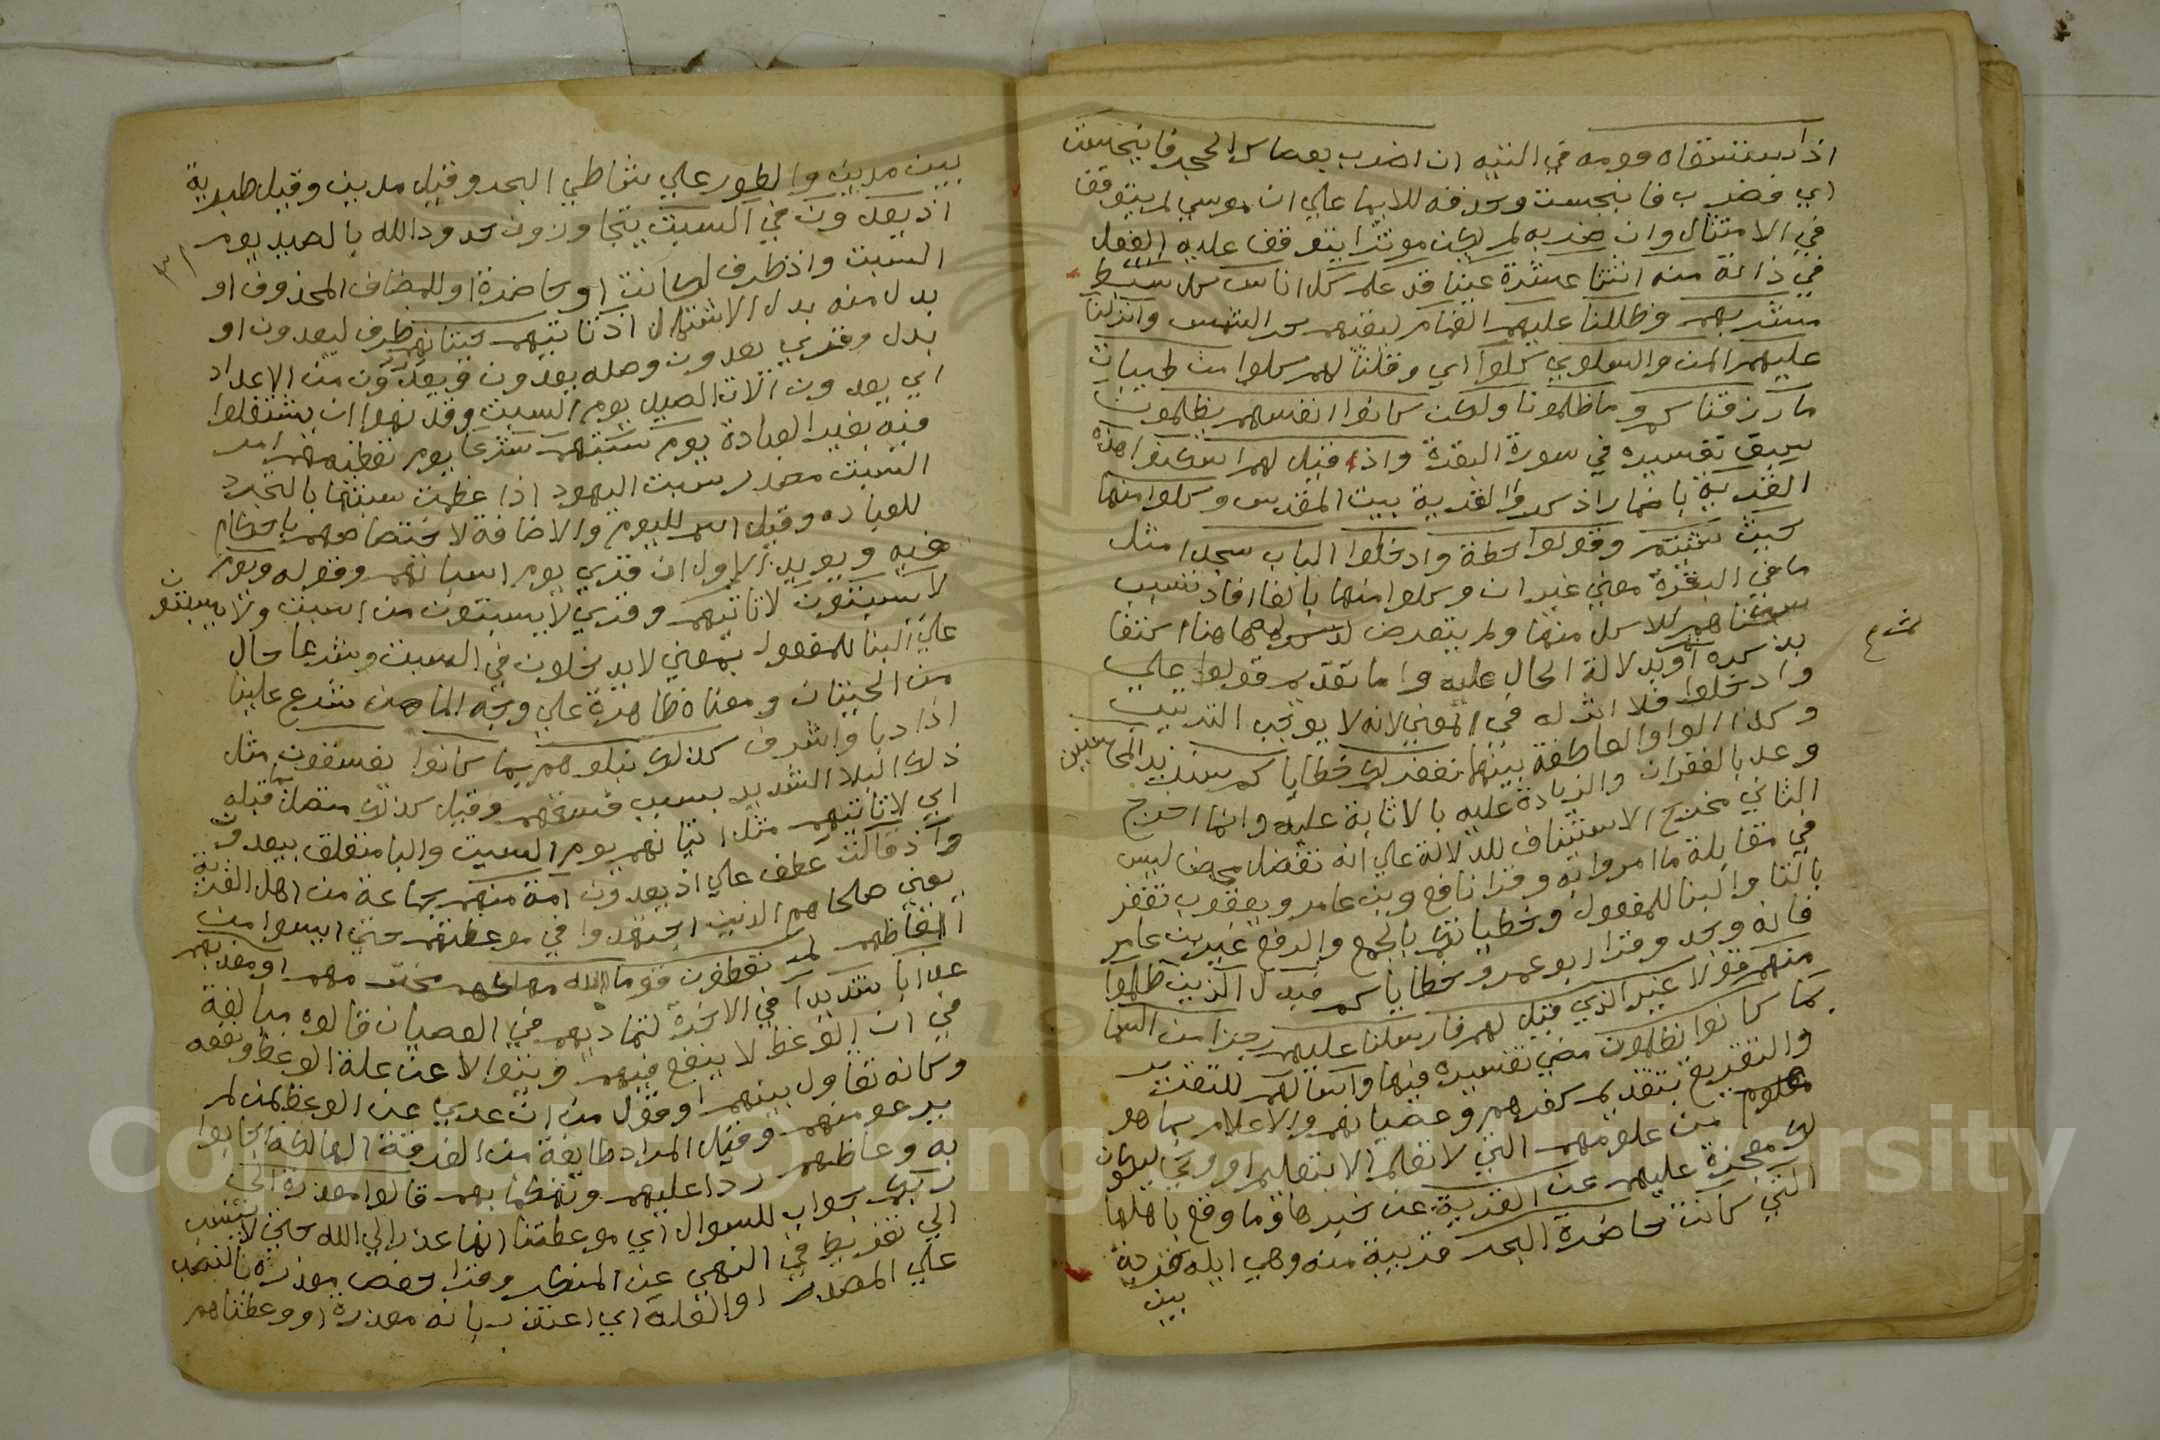 اذا استسقاه قومه في التيه ان اضرب بعصاك الحجر فانبجست
اي فضرب فانبجست وحذفه للايما علي ان موسي لم يتوقف
في الامتثال وان ضربه لم يكن موثرا يتوقف عليه الفعل
في ذاته منه اثنتا عشرة عينا قد علم كل اناس كل سبط
مشربهم وظللنا عليهم الغمام ليقيهم حر الشمس وانزلنا
عليهم المن والسلوي كلوا اي وقلنا لهم كلوا من طيبات
ما رزقناكم وما ظلمونا ولكن كانوا انفسهم يظلمون
سبق تفسيره في سورة البقرة واذ قيل لهم اسكنوا هذه
القرية باضمار اذكر والقرية بيت المقدس وكلوا منها
حيث شئتم وقولوا حطة وادخلوا الباب سجدا مثل
ما في البقرة معني غير ان وكلوا منها بالفا افاد تسبب
سكناهم للاكل منها ولم يتعرض لذكره هاهنا اكتفا
بذكره ثم او بدلالة الحال عليه واما تقديم قولوا علي
وادخلوا فلا اثر له في المعني لانه لا يوجب الترتيب
وكذا الواو العاطفة بينهما نغفر لكم خطاياكم سنزيد المحسنين
وعد بالغفران والزيادة عليه بالاثابة عليه وانما اخرج
الثاني مخرج الاستيناف للدلالة علي انه تفضل محض ليس
في مقابلة ما امروا به وقرا نافع وبن عامر ويعقوب تغفر
بالتا والبنا للمفعول وخطياتكم بالجمع والرفع غير بن عامر
فانه وحد وقرا ابو عمرو خطاياكم فبدل الذين ظلموا
منهم قولا غير الذي قيل لهم فارسلنا عليهم رجزا من السما
بما كانوا يظلمون مضي تفسيره فيها واسالهم للتقرير
والتقريع بتقديم كفرهم وعصيانهم والاعلام بما هو
معلوم من علومهم التي لا تعلم الا بتعليم او وحي ليكون
لك معجزة عليهم عن القرية عن خبرها وما وقع باهلها
التي كانت حاضرة البحر قريبة منه وهي ايله قرية
بين
بين مدين والطور علي شاطي البحر وقيل مدين وقيل طبرية
اذ يعدون في السبت يتجاوزون حدود الله بالصيد يوم
السبت واذ ظرف لكانت او حاضرة او للمضاف المحذوف او
بدل منه بدل الاشتمال اذ تاتيهم حيتانهم ظرف ليعدون او
بدل وقري يعدون وصله يعتدون ويعدون من الاعداد
اي يعدون الات الصيد يوم السبت وقد نهوا ان يشتغلوا
فيه بغير العبادة يوم سبتهم شرعا يوم تعظيمهم امر
السبت مصدر سبت اليهود اذا عظمت سبتها بالتجرد
للعباده وقيل اسم لليوم والاضافة لاختصاصهم باحكام
فيه ويويد الاول ان قري يوم اسباتهم وقوله ويوم
لا يسبتون لا تاتيهم وقري لا يسبتون من اسبت ولا يسبتون
علي البنا للمفعول بمعني لا يدخلون في السبت وشرعا حال
من الحيتان ومعناه ظاهرة علي وجه الما من شرع علينا
اذا دنا واشرف كذلك نبلوهم بما كانوا يفسقون مثل
ذلك البلا الشديد بسبب فسقهم وقيل كذلك متصل بما قبله
اي لا تاتيهم مثل اتيانهم يوم السبت والبا متعلق بيعدون
واذ قالت عطف علي اذ يعدون امة منهم جماعة من اهل القرية
يعني صلحاهم الذين اجتهدوا في موعظتهم حتي ايسوا من
اتعاظهم لم تعظون قوما الله مهلكهم مخترمهم او معذبهم
عذابا شديدا في الاخرة لتماديهم في العصيان قالوه مبالغة
في ان الوعظ لا ينفع فيهم او سوالا عن علة الوعظ ونفعه
وكانه تقاول بينهم او قول من ارعوي عن الوعظ لمن لم
يرعو منهم وقيل المراد طايفة من الفرقة الهالكة اجابوا
به وعاظهم ردا عليهم وتهكما بهم قالوا معذرة الي
ربكم جواب للسوال اي موعظتنا انها عذر الي الله حتي لا ننسب
الي تفريط في النهي عن المنكر وقرا حفص معذرة بالنصب
علي المصدر او العلة اي اعتذرنا به معذرة او وعظناهم